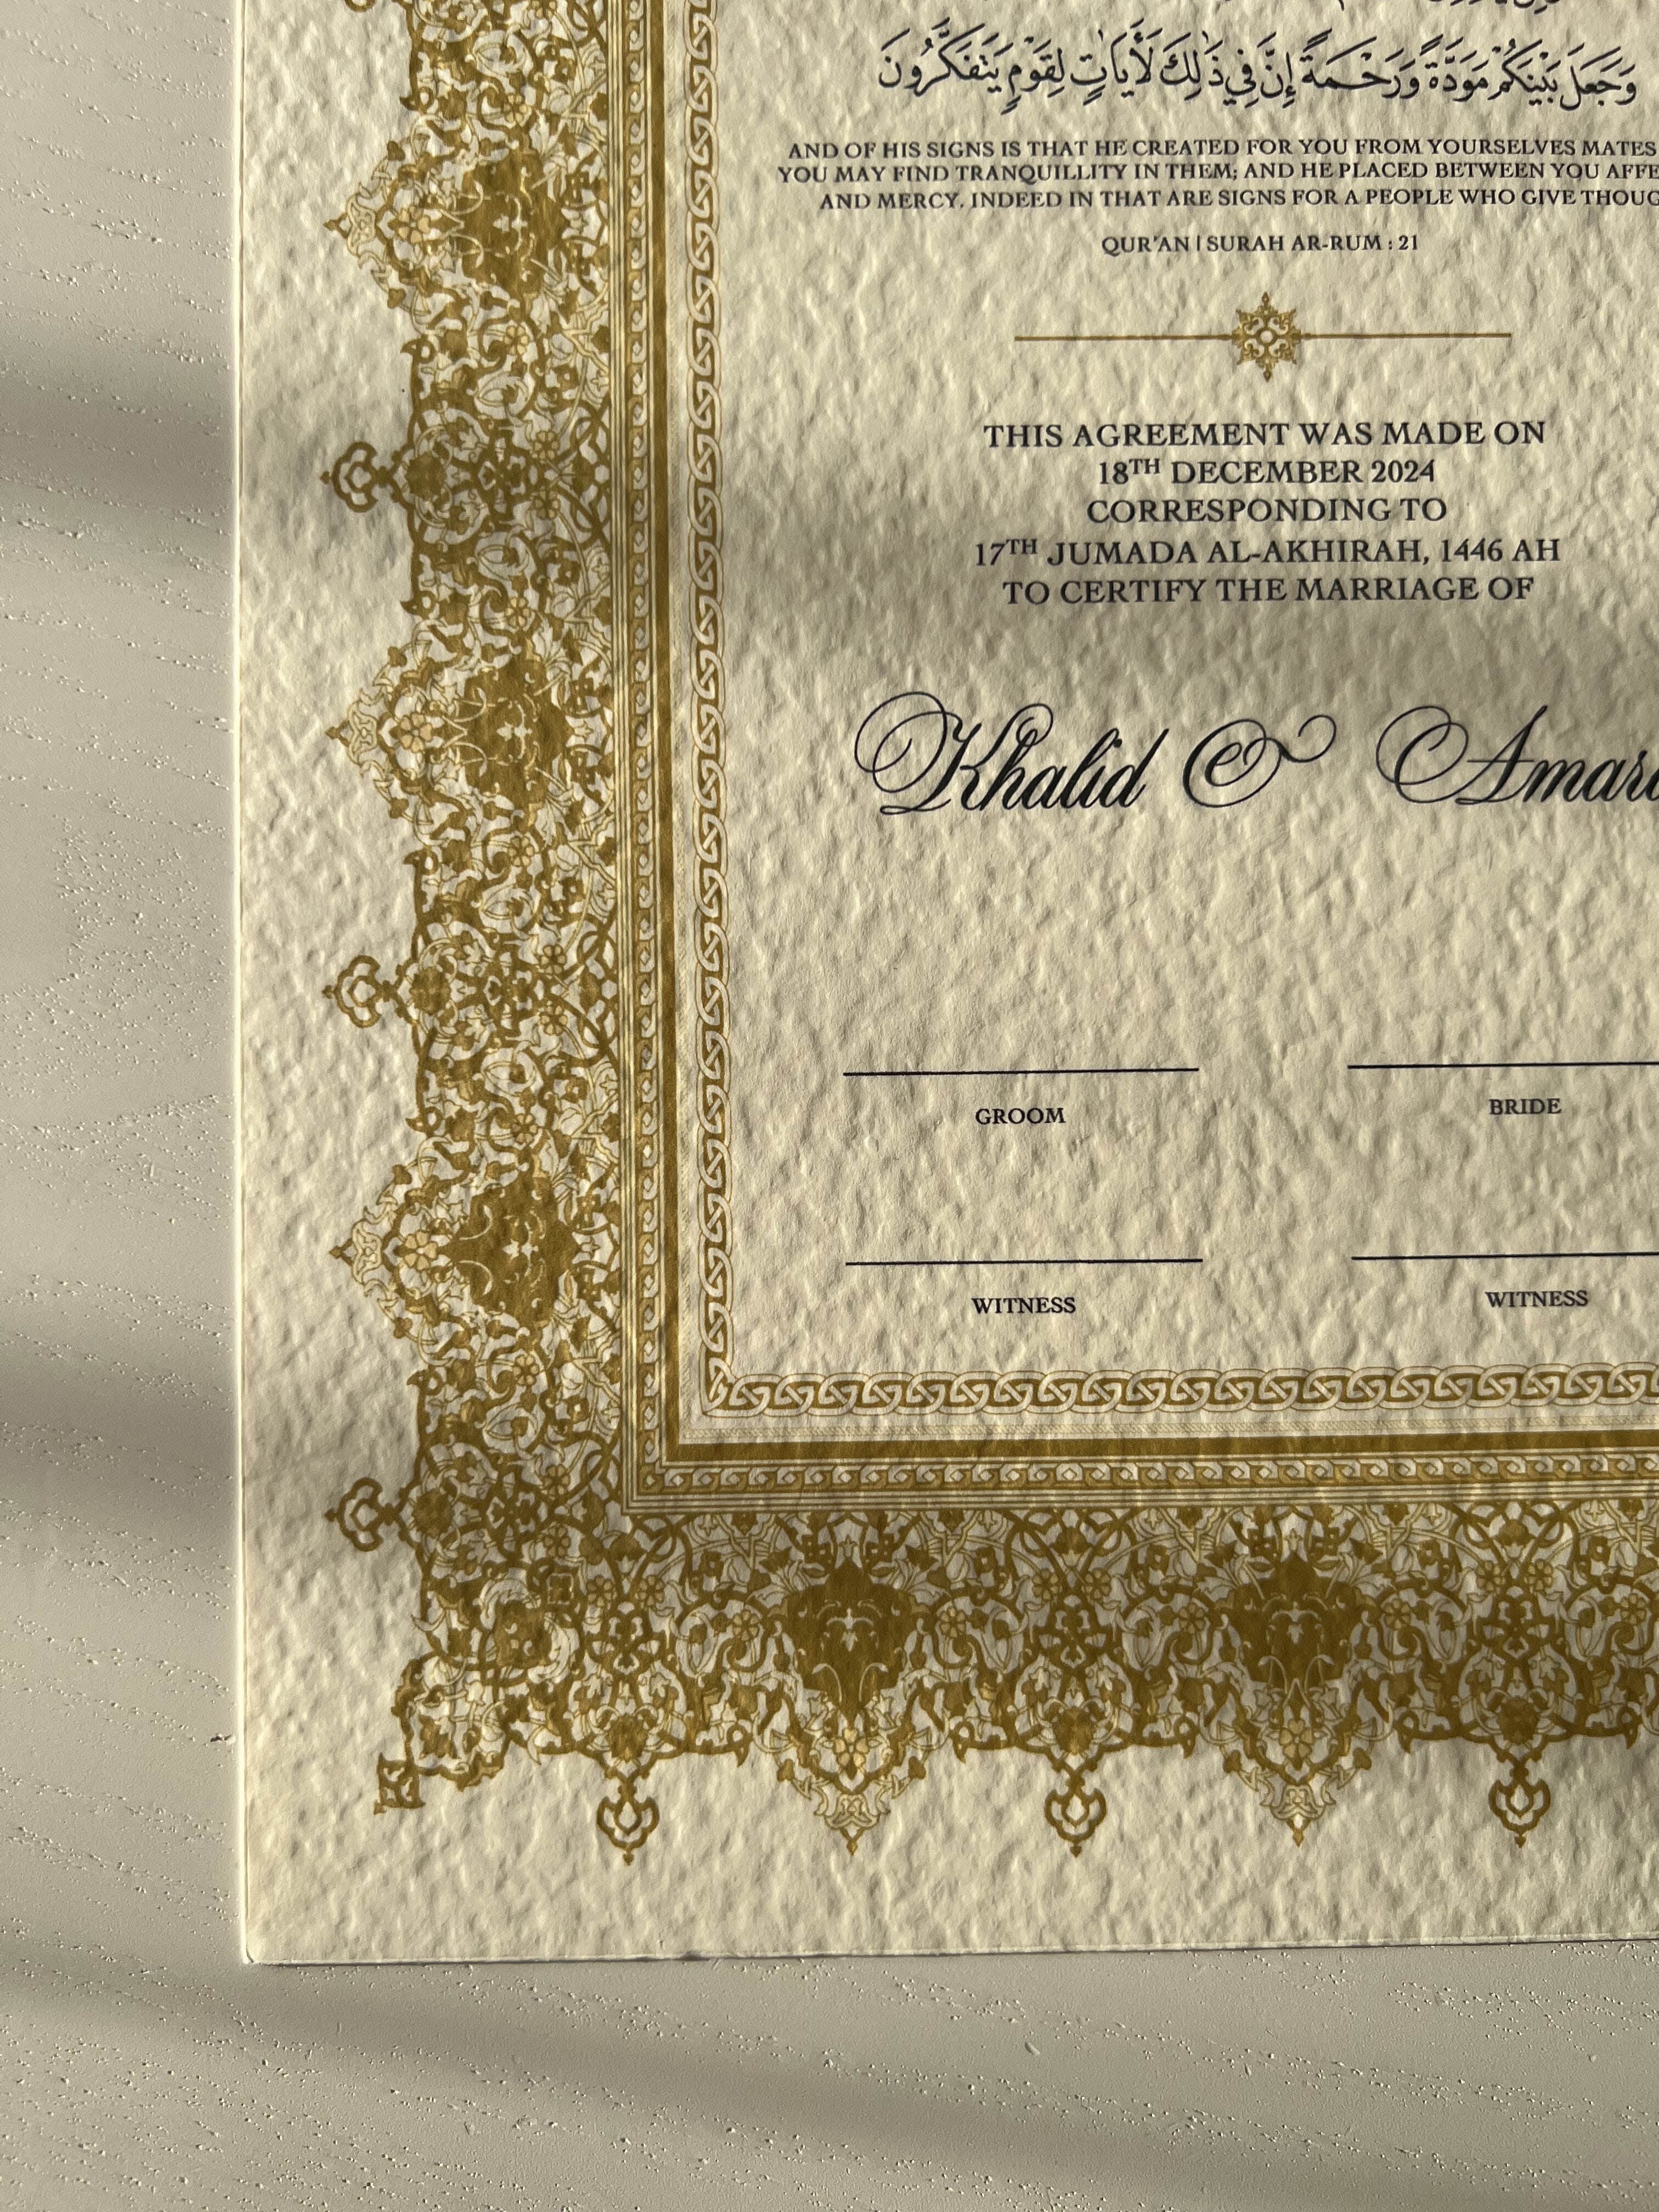 وَجَعَلَ بَيْنَكُم مَّوَدَّةً وَرَحْمَةً إِنَّ فِي ذَٰلِكَ لَآيَاتٍ لِّقَوْمٍ يَتَفَكَّرُونَ
AND OF HIS SIGNS IS THAT HE CREATED FOR YOU FROM YOURSELVES MATES
YOU MAY FIND TRANQUILLITY IN THEM; AND HE PLACED BETWEEN YOU AFFE
AND MERCY. INDEED IN THAT ARE SIGNS FOR A PEOPLE WHO GIVE THOUG
QUR'AN | SURAH AR-RUM : 21
THIS AGREEMENT WAS MADE ON
18TH DECEMBER 2024
CORRESPONDING TO
17TH JUMADA AL-AKHIRAH, 1446 AH
TO CERTIFY THE MARRIAGE OF
Khalid & Amar
GROOM BRIDE
WITNESS WITNESS